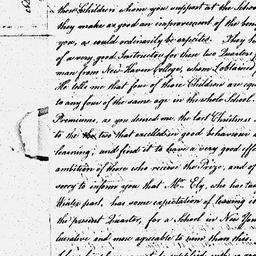 these Children whom you support at the School
they make as good an improvement of the
you, as could ordinarily be expected. They
of a very good Instructor for these two Quarters
man from New Haven College, whom I obtained
He tells me that four of those Children are equ
to any four of the same age in the whole School.
Premiums, as you desired me, the last Christmas
to the two that excelled in good behaviour
learning; and find it to have a very good effe
ambition of those who receive the Prize, and of
sorry to inform you that Mr. Ely, who has tau
Winter past, has some expectation of leaving
the present Quarter, for a School in New Yor
lucrative and more agreeable to him than this.